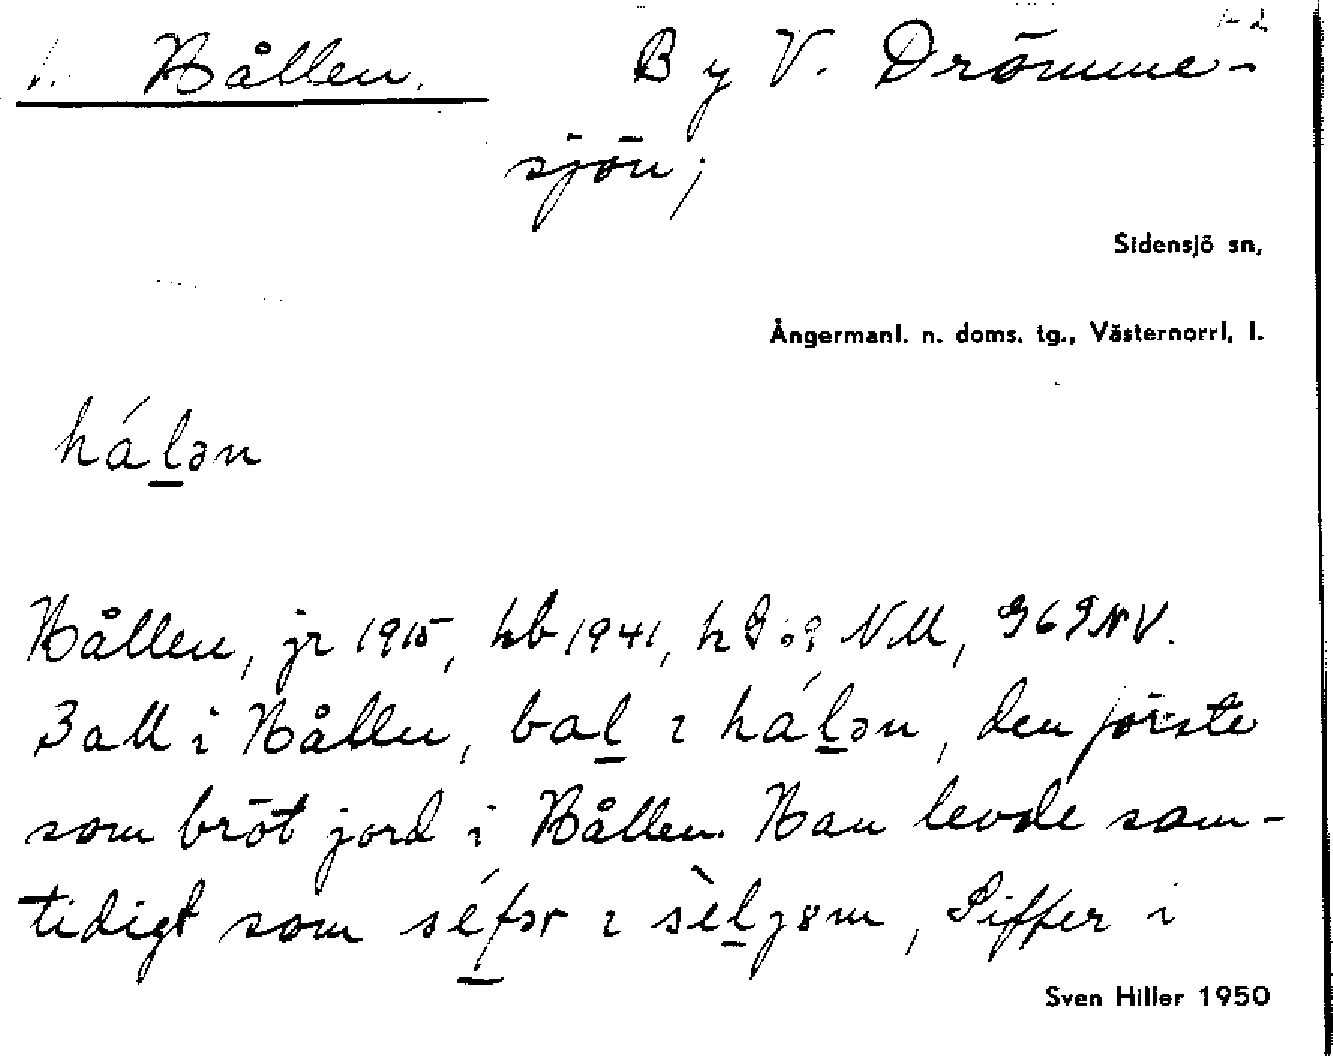 1. Hållen. By V. Drömme- 1-2
sjön;
Sidensjö sn,
Ångermanl. n. doms. tg., Västernorrl. l.
hálən
Hållen, jr 1915, hb 1941, NM, 969NV.
Ball i Hållen, bal ɪ hálən, den förste
som bröt jord i Hållen. Han levde sam-
tidigt som séfər ɪ Siffer i
Sven Hiller 1950